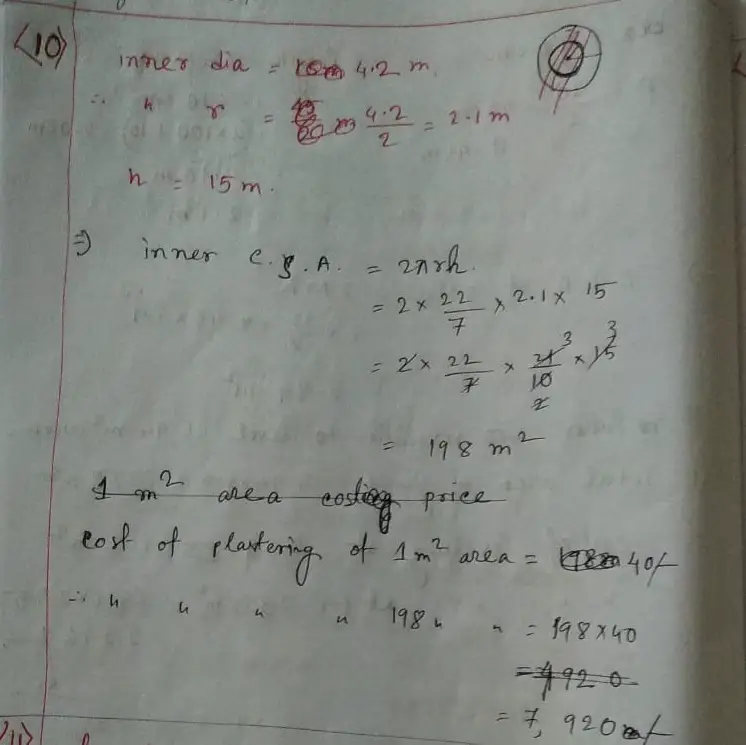 <10>
inner dia = 4.2 m.
∴ " r = 4.2/2 = 2.1 m
h = 15 m.
⇒ inner C.S.A. = 2πrh.
= 2 × 22/7 × 2.1 × 15
= 2 × 22/7 × 21/10 × 15
3 3
2
= 198 m²
1 m² area costing price
Cost of plastering of 1 m² area = 40/-
∴ " " " " 198 " " = 198×40
= 7920
= 7,920/-
11>